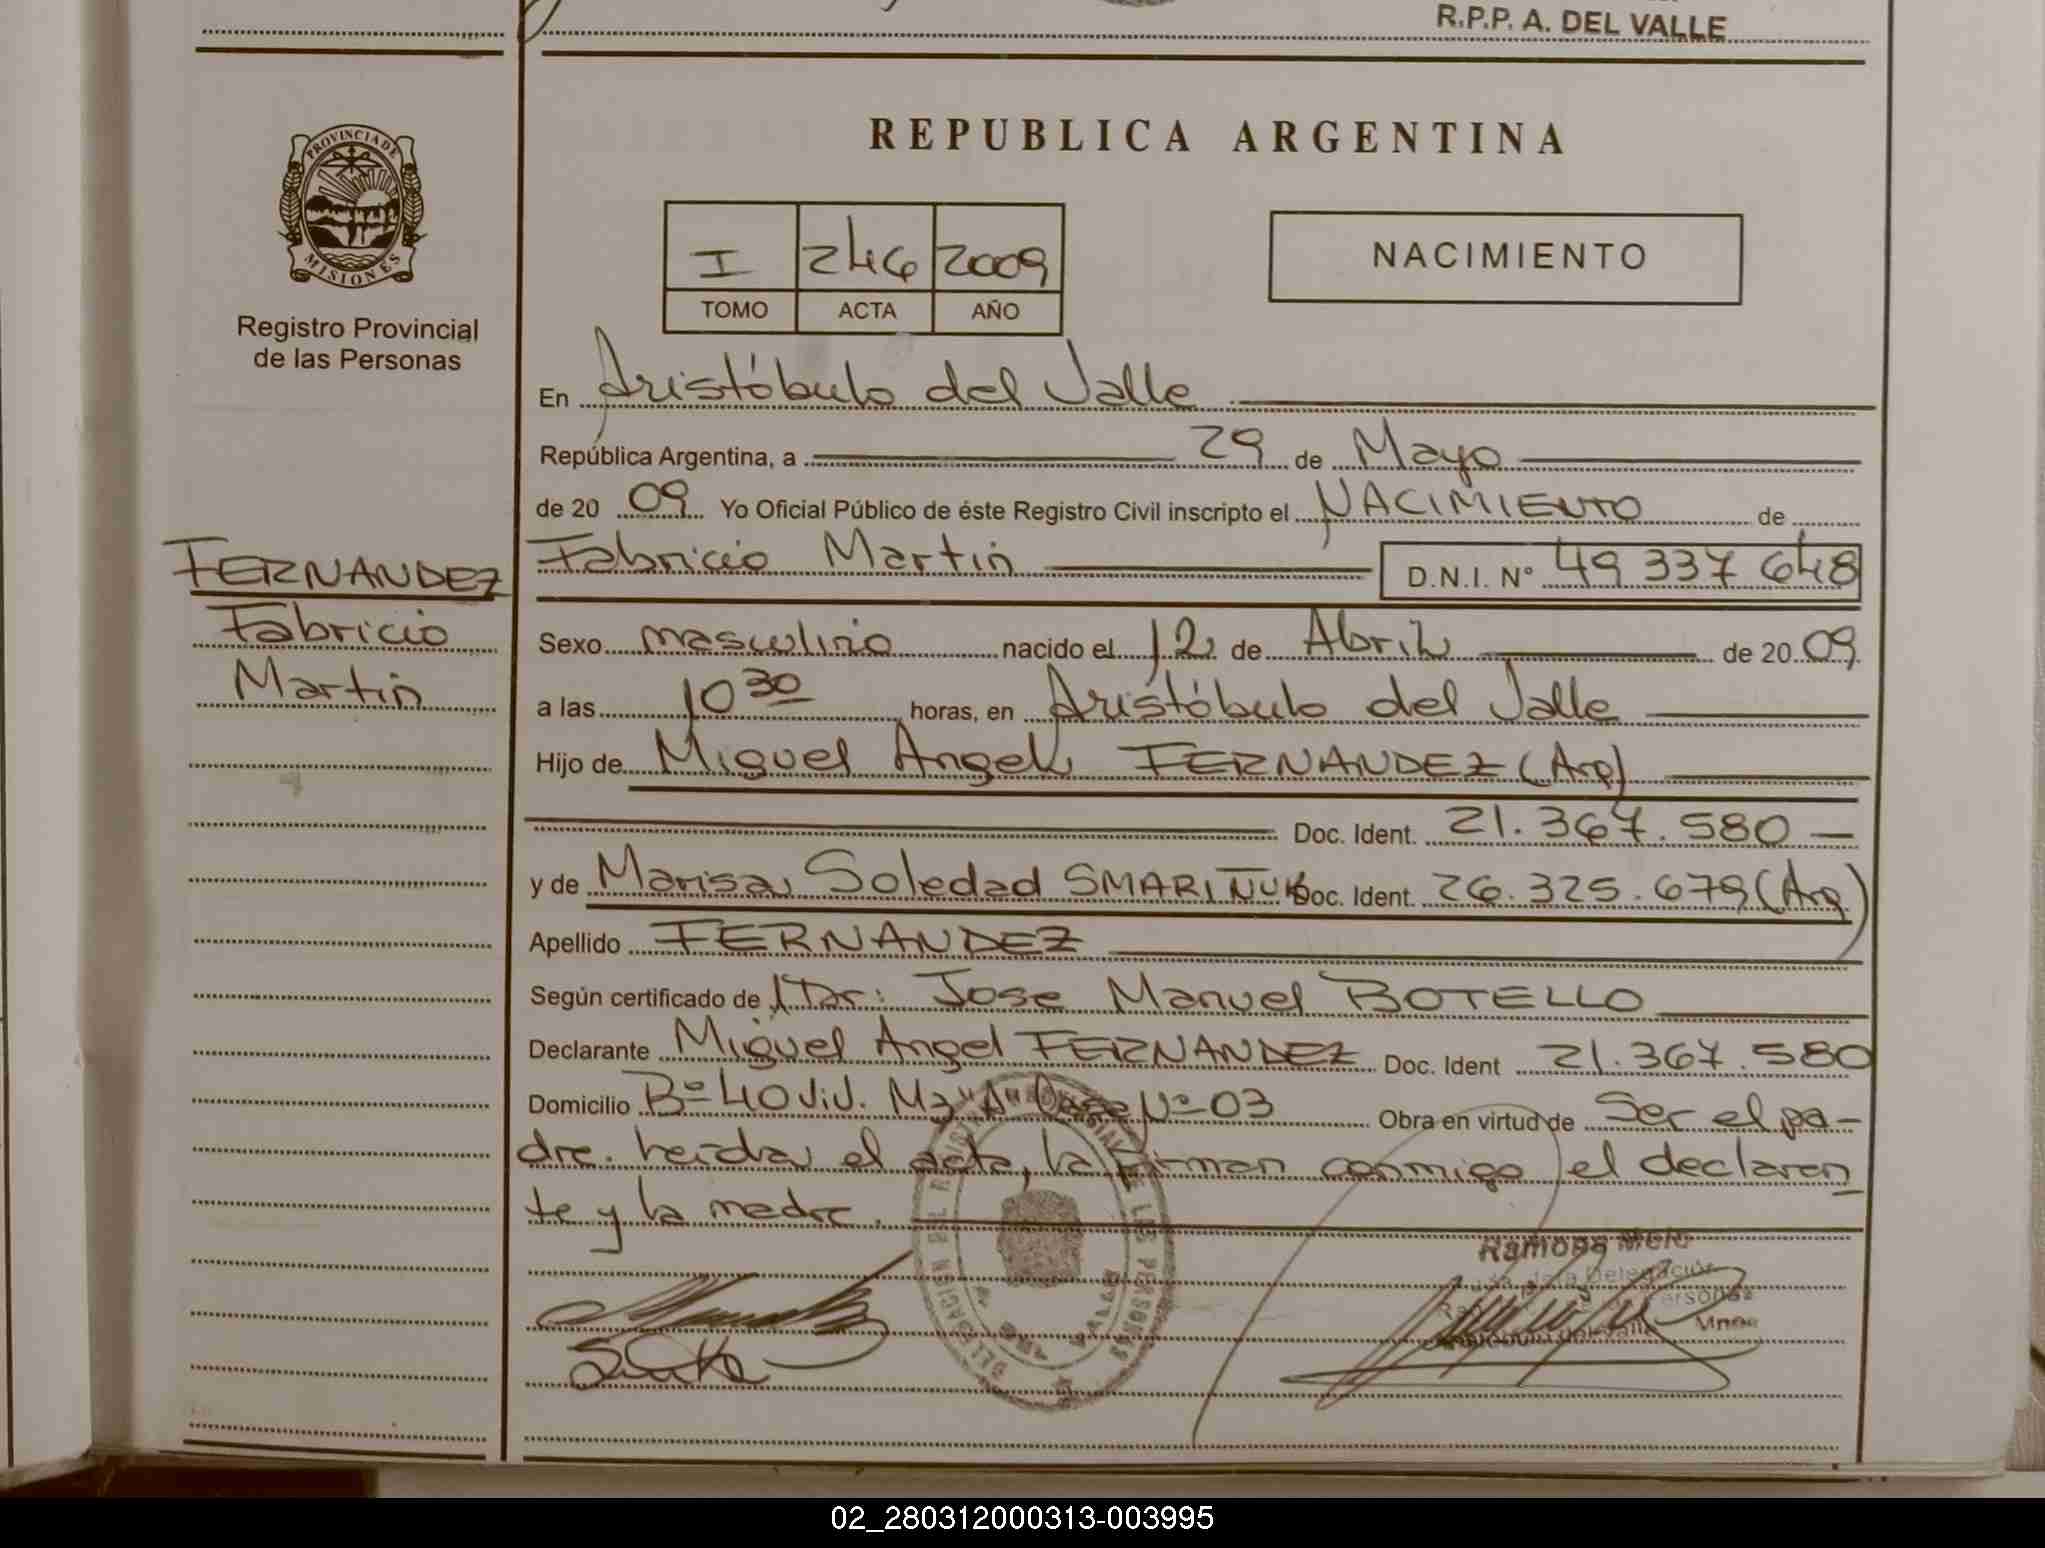 R.P.P. A. DEL VALLE
PROVINCIA DE
MISIONES
Registro Provincial
de las Personas
FERNANDEZ
Fabricio
Martin
REPUBLICA ARGENTINA
I 246 2009
TOMO ACTA AÑO
NACIMIENTO
En Aristóbulo del Valle
República Argentina, a 29 de Mayo
de 20 09 Yo Oficial Público de éste Registro Civil inscripto el NACIMIENTO de
Fabricio Martin D.N.I. Nº 49 337 648
Sexo masculino nacido el 12 de Abril de 20 09
a las 10 30 horas, en Aristóbulo del Valle
Hijo de Miguel Angel FERNANDEZ (Arg)
Doc. Ident. 21.367.580
y de Marisa Soledad SMARIÑUK Doc. Ident. 26.325.679 (Arg)
Apellido FERNANDEZ
Según certificado de Dr: Jose Manuel BOTELLO
Declarante Miguel Angel FERNANDEZ Doc. Ident 21.367.580
Domicilio Bº 40 Viv. Mz "A" Casa Nº 03 Obra en virtud de Ser el pa-
dre. leida el acta, la firman conmigo el declaran
te y la madre.
Ramona Melo
02_280312000313-003995